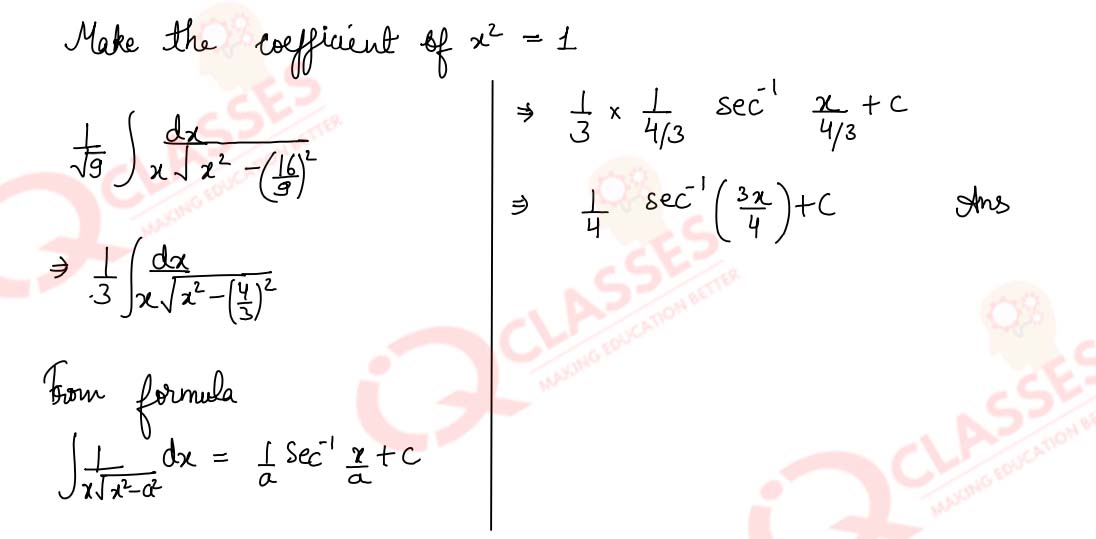 Make the coefficient of x² = 1
1/√9 ∫ dx / x√x² - (16/9)²
⇒ 1/3 ∫ dx / x√x² - (4/3)²
From formula
∫ 1 / x√x²-a² dx = 1/a Sec⁻¹ x/a + C
⇒ 1/3 × 1/4/3 sec⁻¹ x/4/3 + C
⇒ 1/4 sec⁻¹ (3x/4) + C Ans
iQ CLASSES
MAKING EDUCATION BETTER
iQ CLASSES
MAKING EDUCATION BETTER
iQ CLASSES
MAKING EDUCATION BETTER